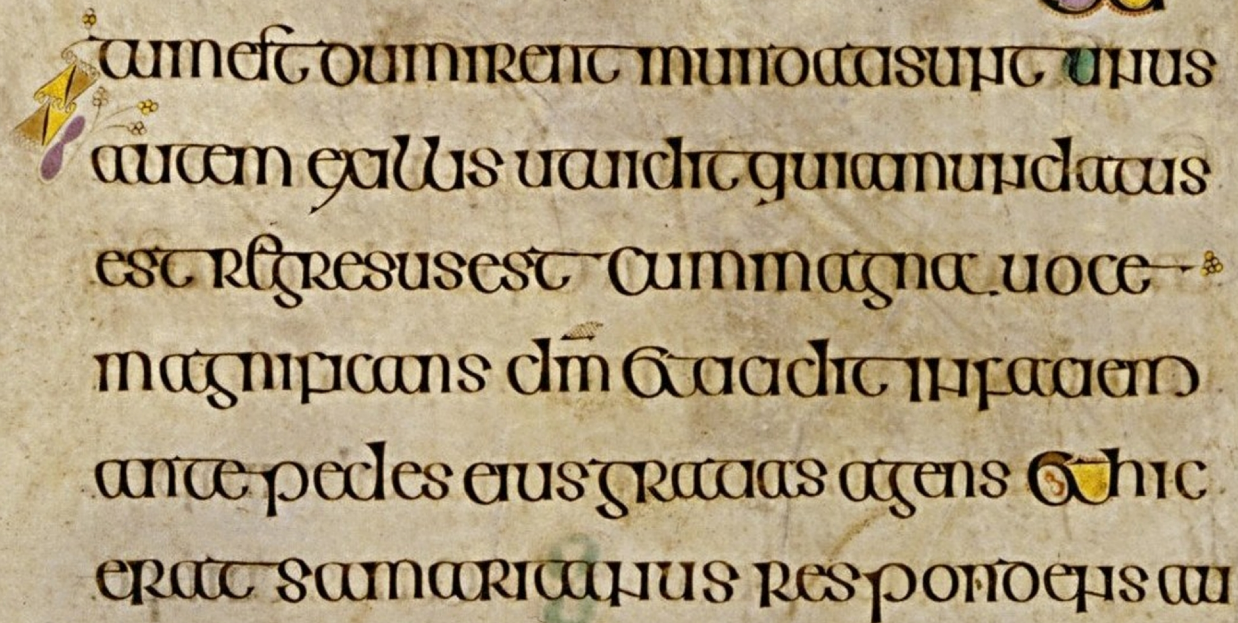 tum est dum irent mundati sunt unus
autem ex illis ut uidit quia mundatus
est regresus est cum magna uoce
magnificans dm̄ et cecidit in faciem
ante pedes eius gratias agens et hic
erat samaritanus respondens au